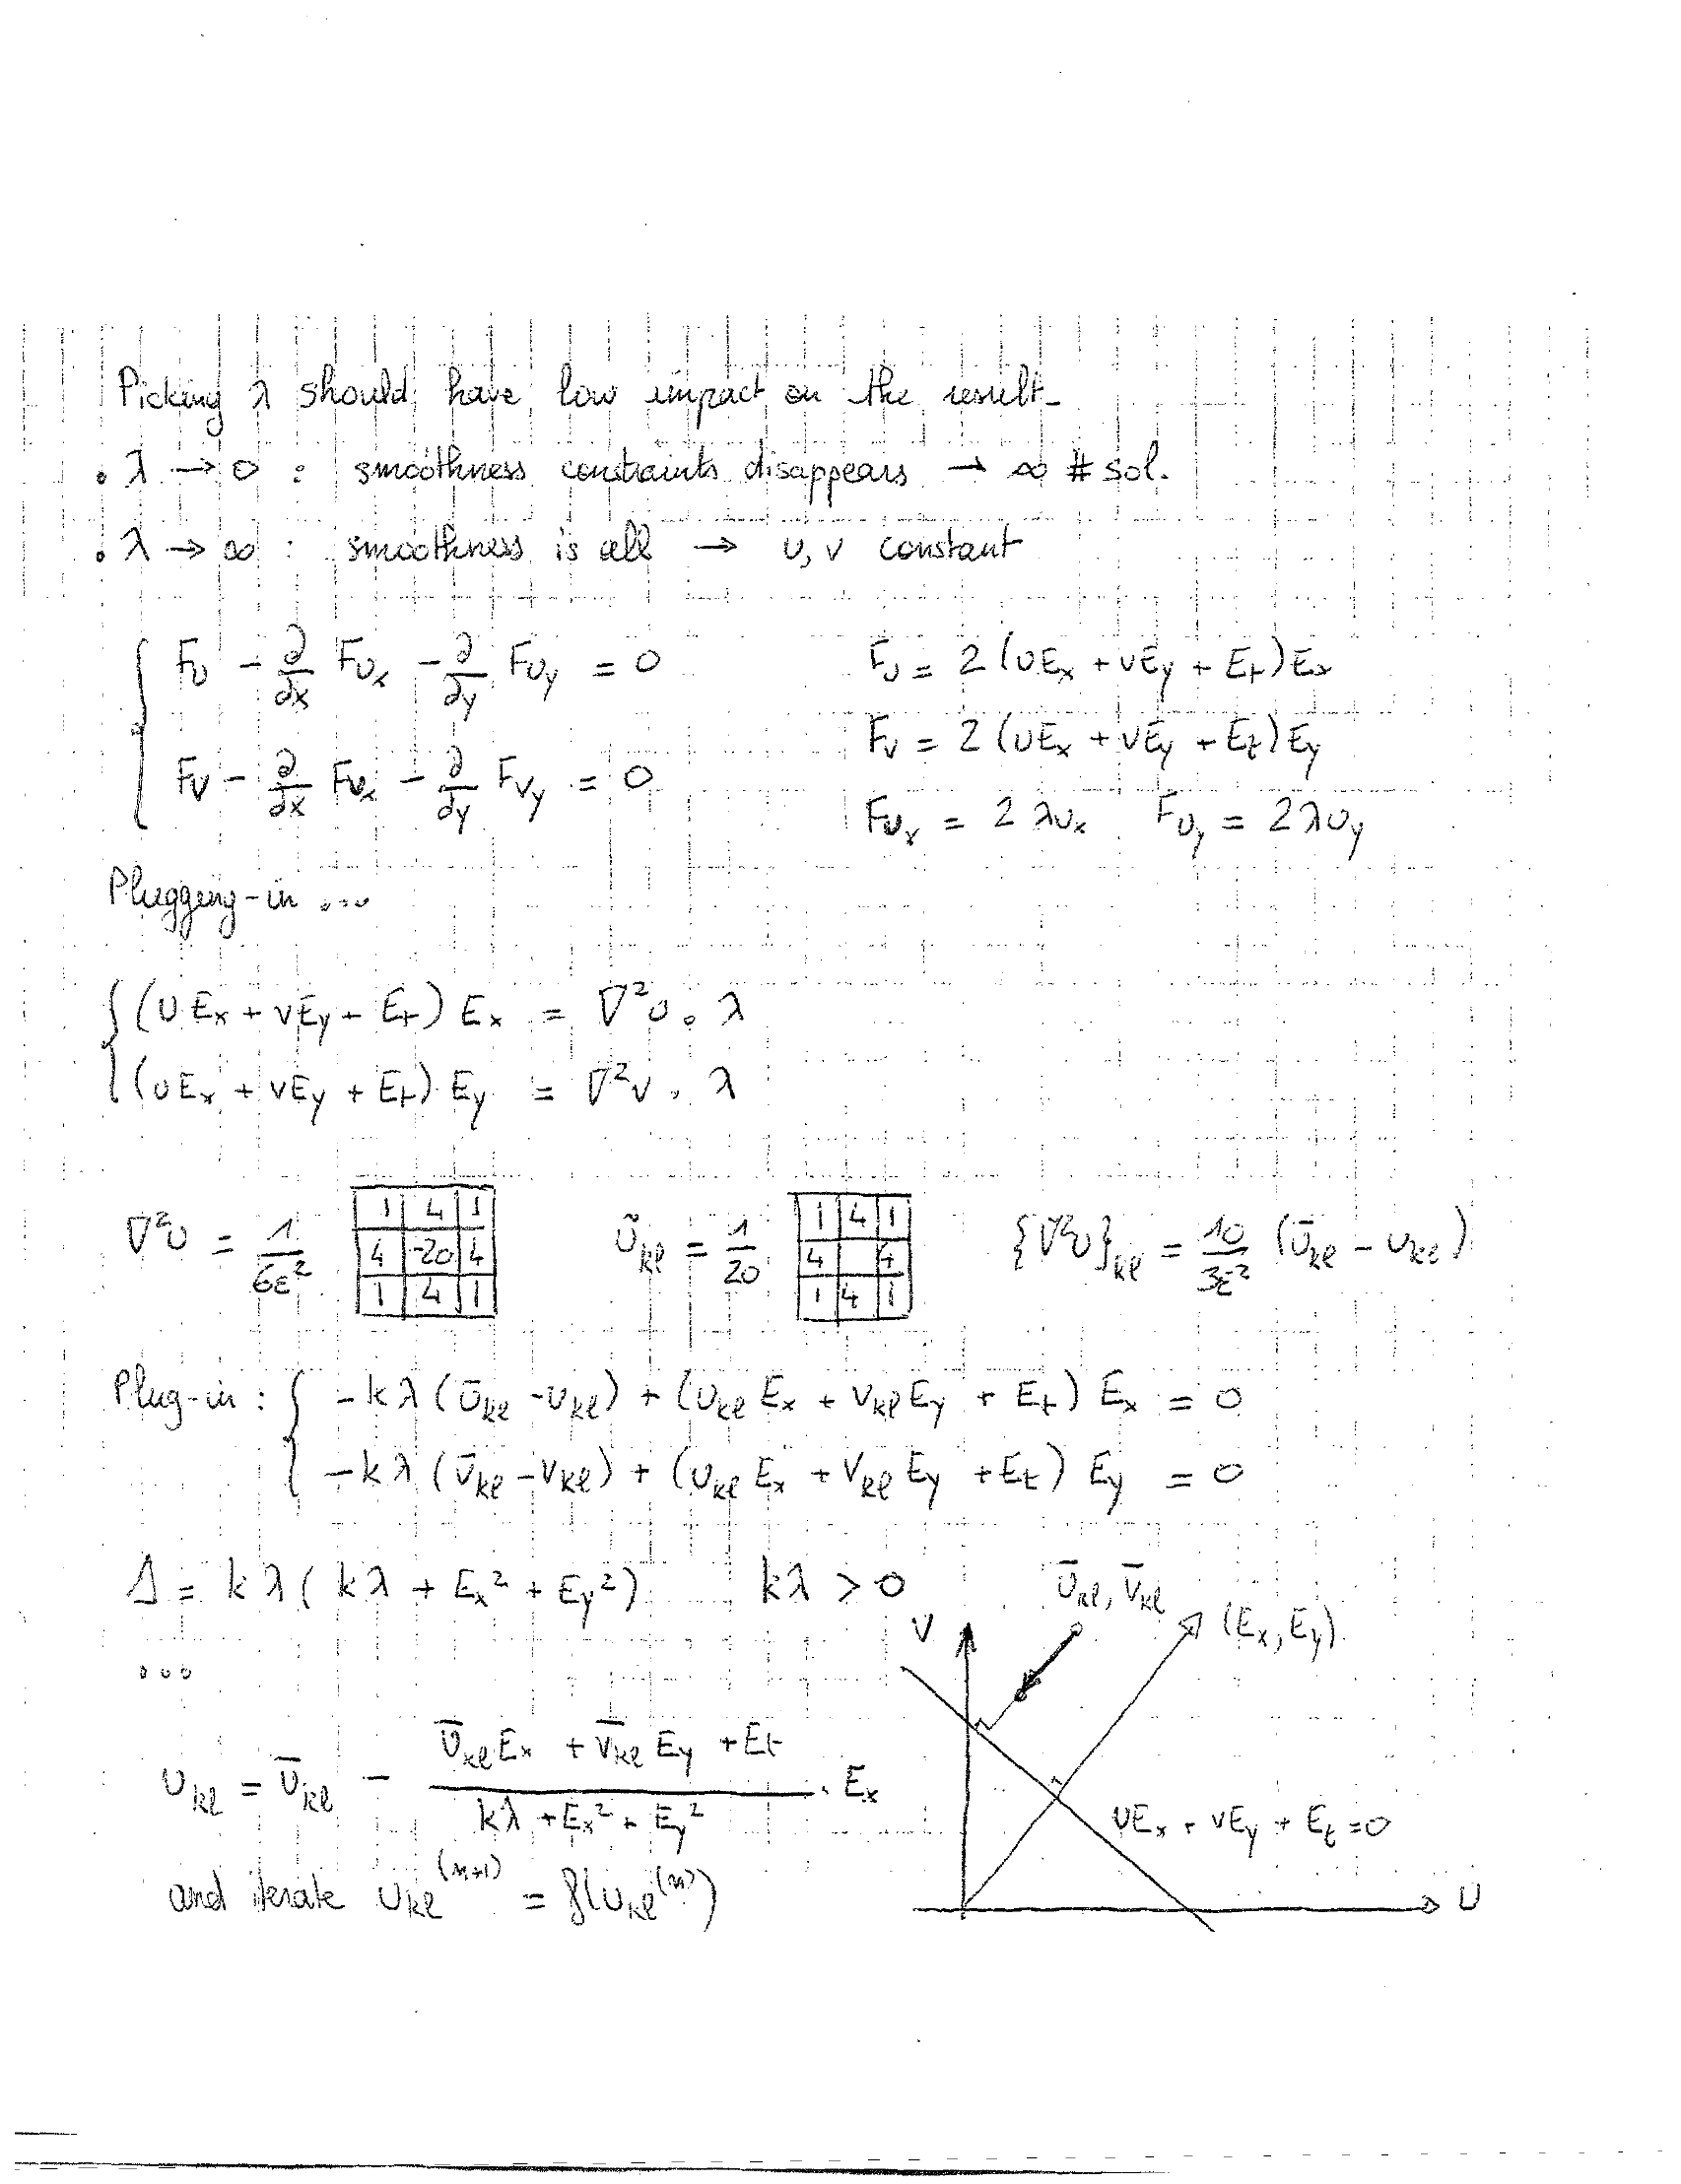 Picking λ should have low impact on the result.
• λ → 0 : smoothness constraints disappears → ∞ # sol.
• λ → ∞ : smoothness is all → u, v constant
F_u - ∂/∂x F_{u_x} - ∂/∂y F_{u_y} = 0
F_v - ∂/∂x F_{v_x} - ∂/∂y F_{v_y} = 0
F_u = 2 (uE_x + vE_y + E_t) E_x
F_v = 2 (uE_x + vE_y + E_t) E_y
F_{u_x} = 2 λu_x F_{u_y} = 2λu_y
Plugging-in ...
(u E_x + vE_y + E_t) E_x = ∇²u . λ
(uE_x + vE_y + E_t) E_y = ∇²v . λ
∇²u = 1/(6ε²)
1 4 1
4 -20 4
1 4 1
ũ_{kl} = 1/20
1 4 1
4 4
1 4 1
{∇²u}_{kl} = 10/(3ε²) (ū_{kl} - u_{kl})
Plug-in : -kλ (ū_{kl} - u_{kl}) + (u_{kl} E_x + v_{kl} E_y + E_t) E_x = 0
-kλ (ū_{kl} - v_{kl}) + (u_{kl} E_x + v_{kl} E_y + E_t) E_y = 0
Δ = kλ ( kλ + E_x² + E_y²) kλ > 0
...
u_{kl} = ū_{kl} - (ū_{kl} E_x + v̄_{kl} E_y + E_t)/(kλ + E_x² + E_y²) . E_x
and iterate u_{kl}^{(n+1)} = f(u_{kl}^{(n)})
ū_{kl}, v̄_{kl}
v
(E_x, E_y)
uE_x + vE_y + E_t = 0
u